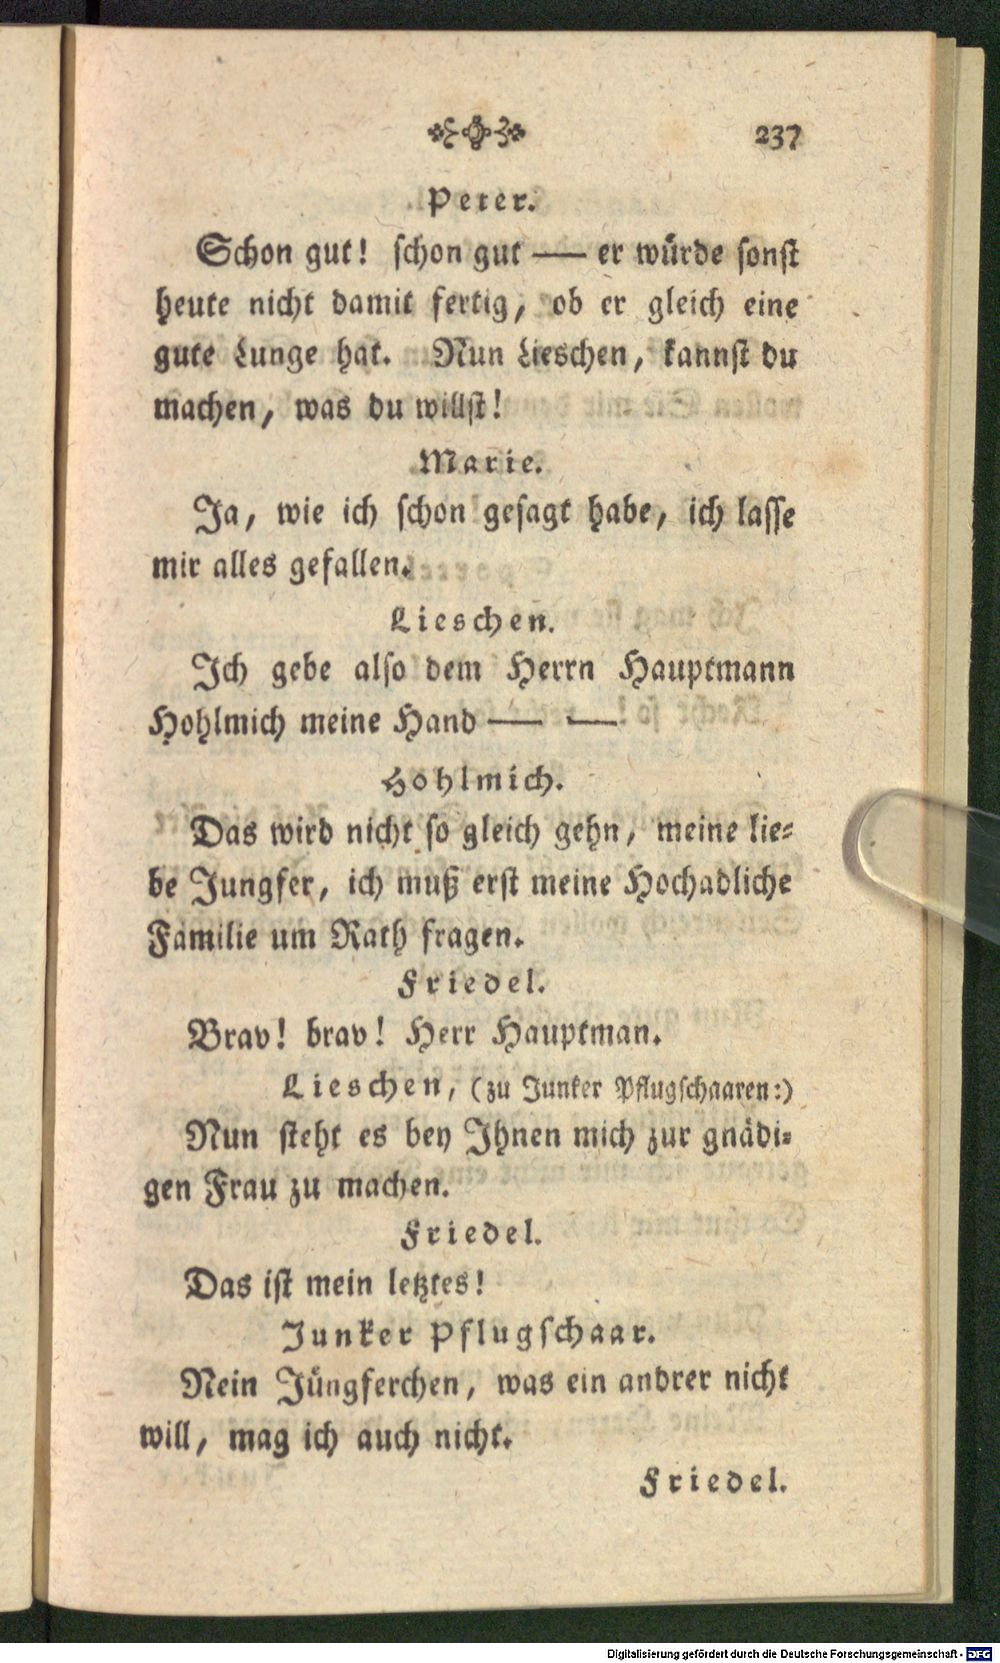 237
Peter.
Schon gut! schon gut — er würde sonst
heute nicht damit fertig, ob er gleich eine
gute Lunge hat. Nun Lieschen, kannst du
machen, was du willst!
Marie.
Ja, wie ich schon gesagt habe, ich lasse
mir alles gefallen.
Lieschen.
Ich gebe also dem Herrn Hauptmann
Hohlmich meine Hand — —
Hohlmich.
Das wird nicht so gleich gehn, meine lie⸗
be Jungfer, ich muß erst meine Hochadliche
Familie um Rath fragen.
Friedel.
Brav! brav! Herr Hauptman.
Lieschen, (zu Junker Pflugschaaren:)
Nun steht es bey Ihnen mich zur gnädi⸗
gen Frau zu machen.
Friedel.
Das ist mein letztes!
Junker Pflugschaar.
Nein Jüngferchen, was ein andrer nicht
will, mag ich auch nicht.
Friedel.
Digitalisierung gefördert durch die Deutsche Forschungsgemeinschaft - DFG